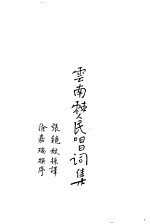 雲南種人民唱词集
張鏡秋採譯
徐嘉瑞撰序